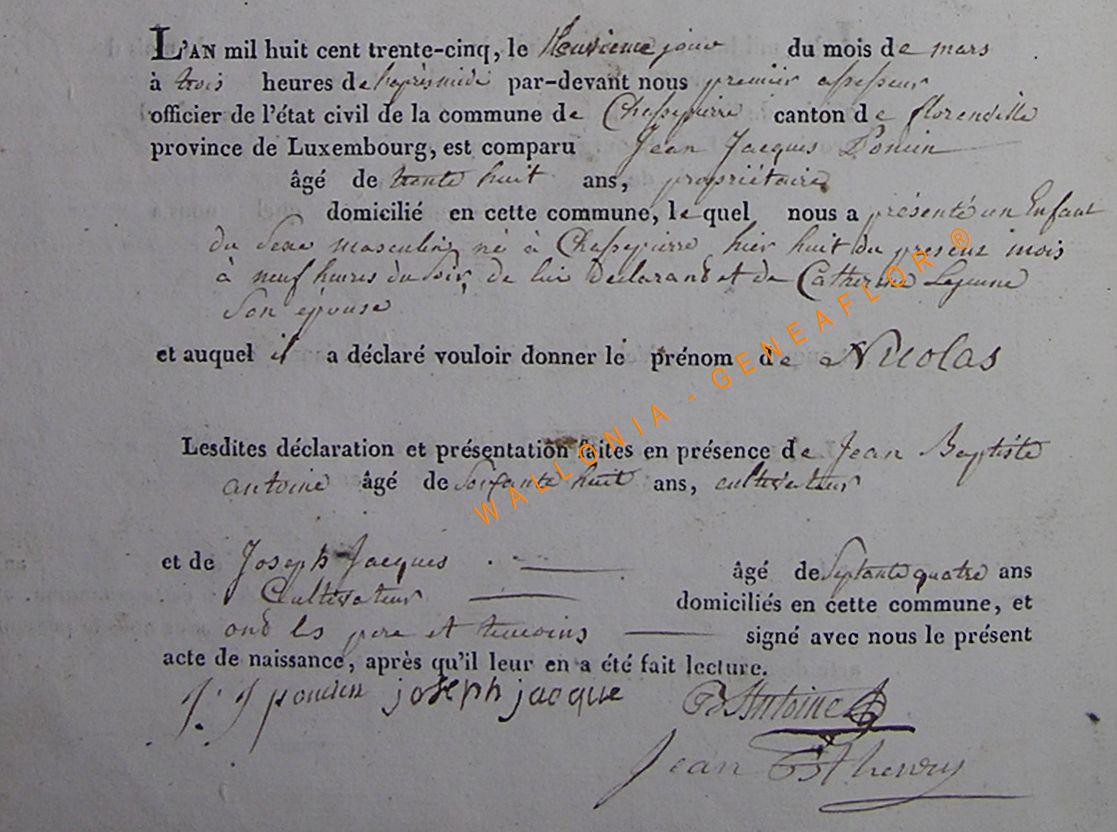 L'AN mil huit cent trente-cinq, le Neuvieme jour du mois de mars
à trois heures de l'après midi par-devant nous premier assesseur
officier de l'état civil de la commune de Chassepierre canton de florenville
province de Luxembourg, est comparu Jean Jacques Poncin
âgé de trente huit ans, propriétaire
domicilié en cette commune, lequel nous a présenté un Enfant
du Sexe masculin né à Chassepierre hier huit du present mois
à neuf heures du soir, de lui Declarant et de Catherine Lejeune
Son épouse
et auquel il a déclaré vouloir donner le prénom de Nicolas
Lesdites déclaration et présentation faites en présence de Jean Baptiste
antoine âgé de Soixante huit ans, cultivateur
et de Joseph Jacques âgé de Septante quatre ans
Cultivateur domiciliés en cette commune, et
ond les pere et temoins signé avec nous le présent
acte de naissance, après qu'il leur en a été fait lecture.
J. J poncin joseph jacque Antoine
Jean Bte henry
WALLONIA - GENEAFLOR ®